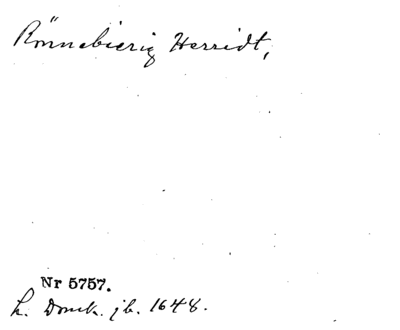 Rönnebierig Herridt,
Nr 5757.
L. Domk. jb. 1648.